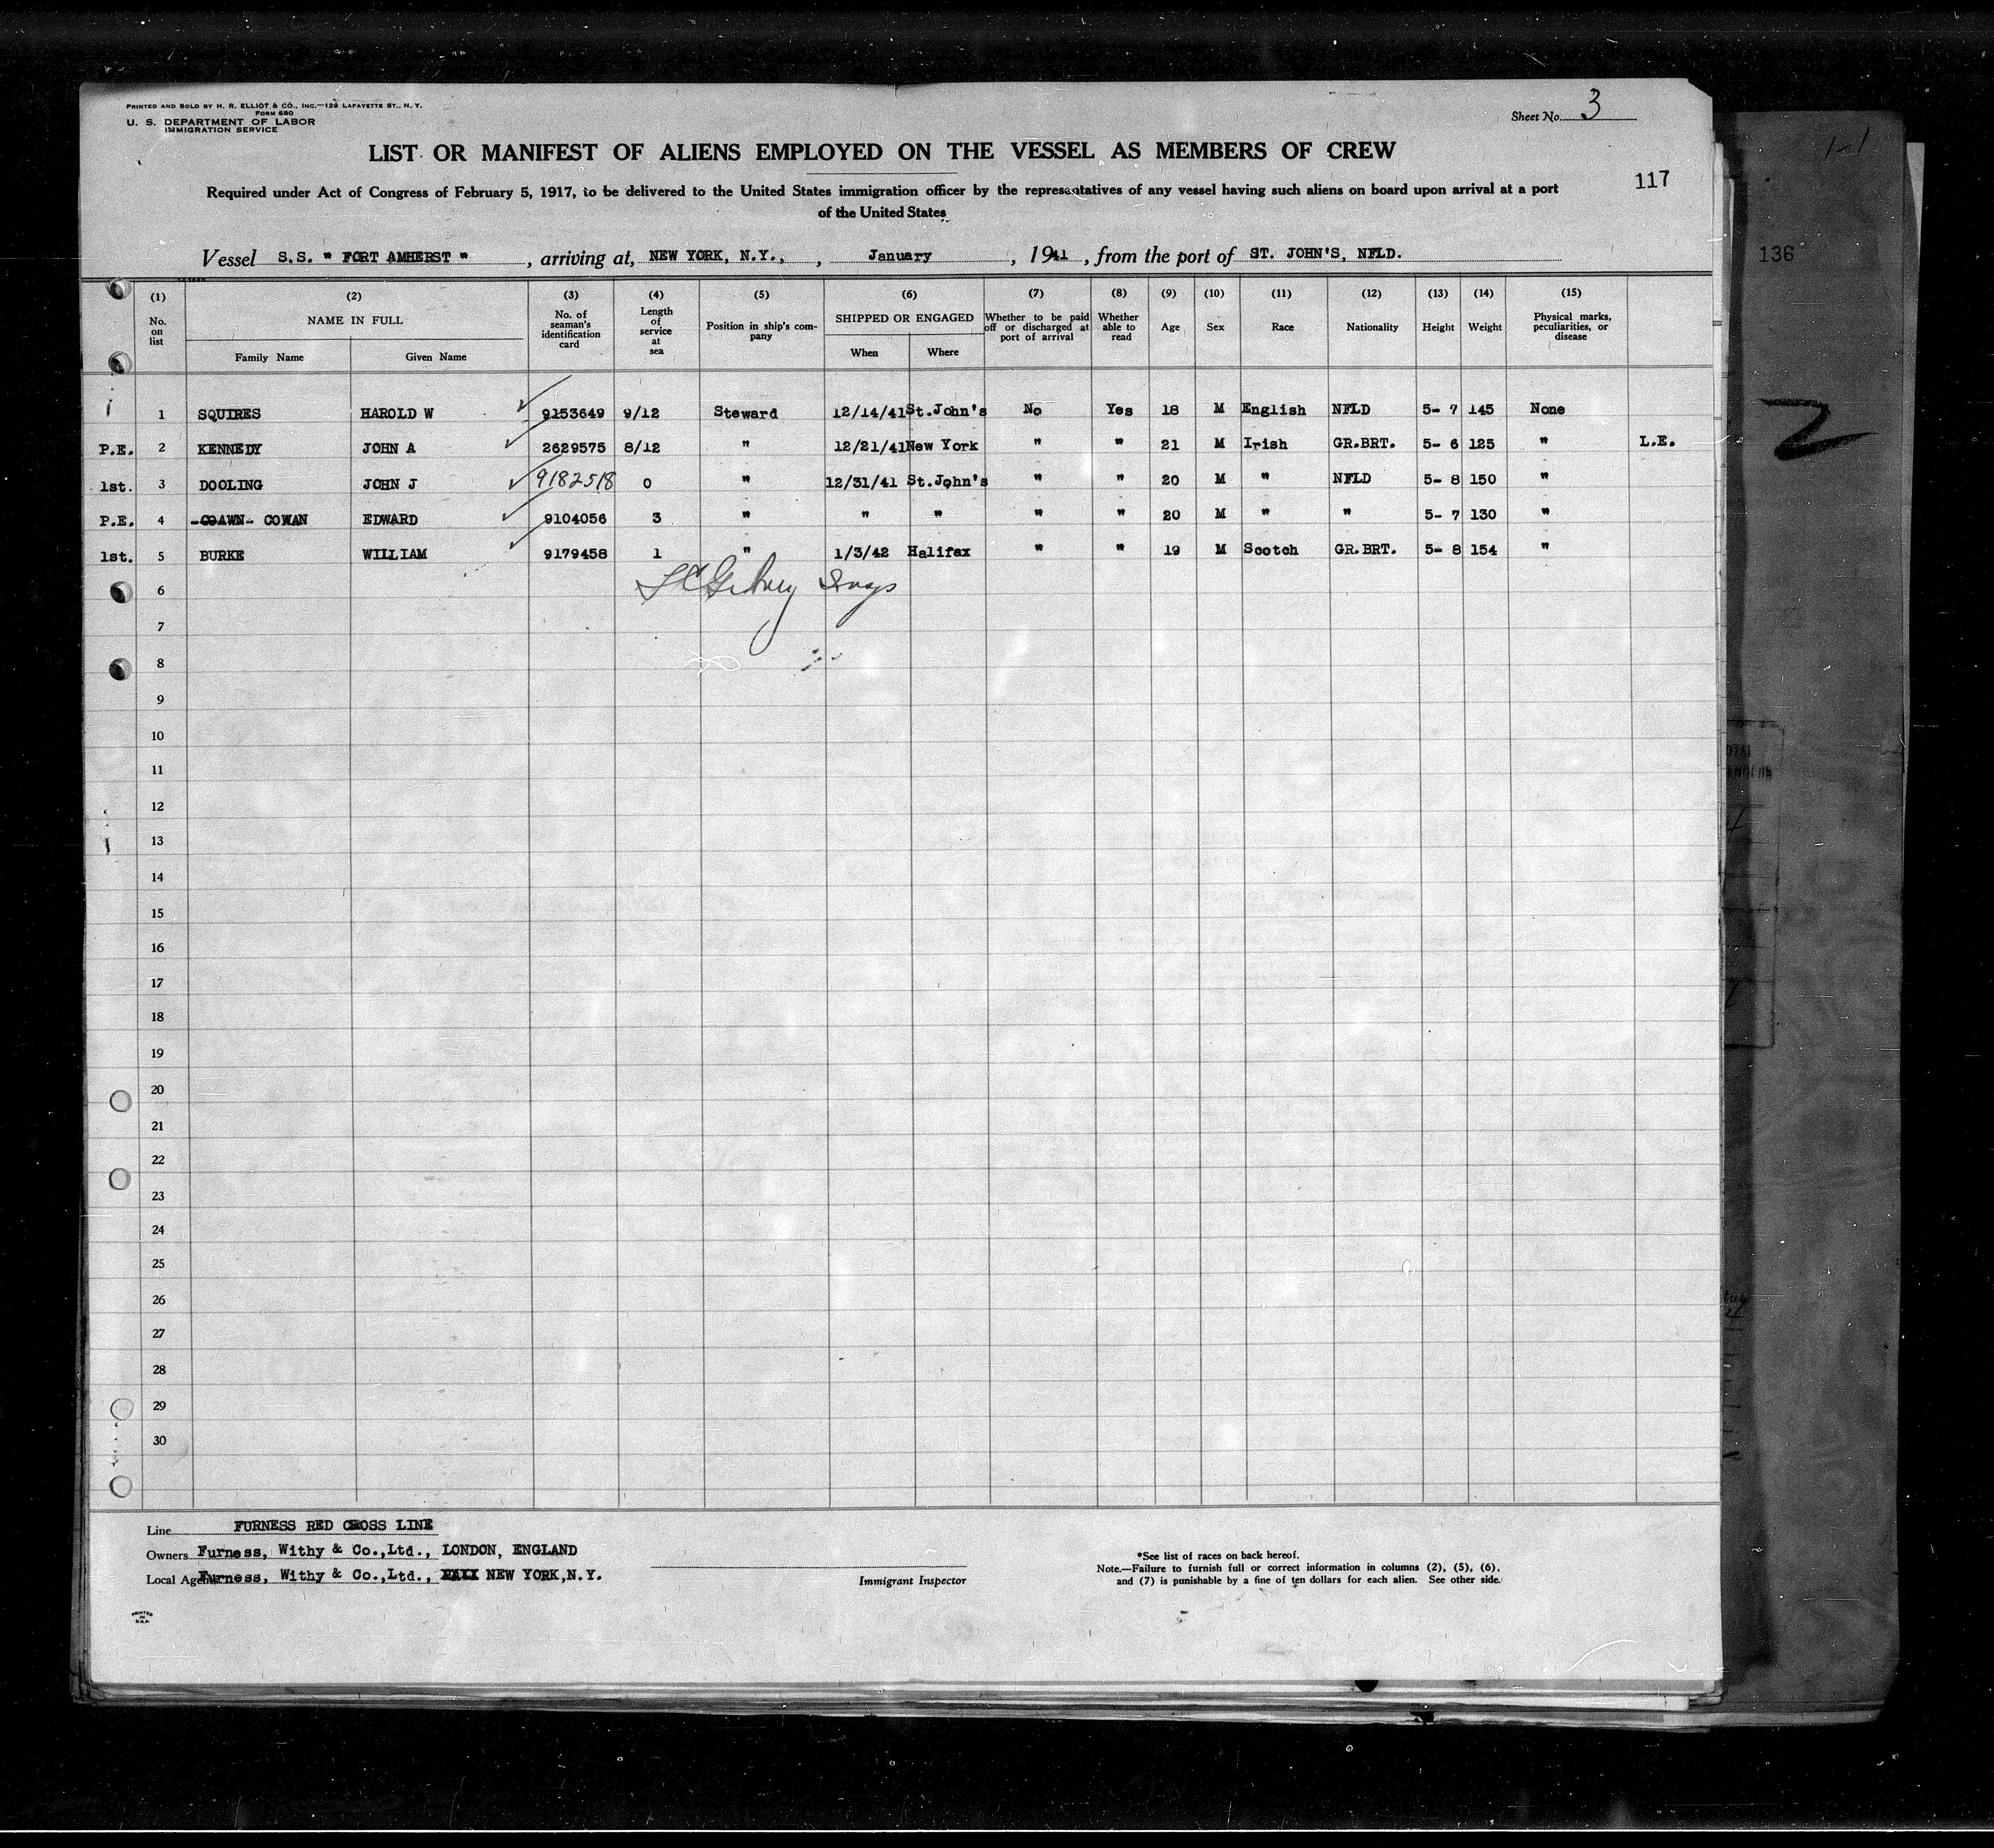 PRINTED AND SOLD BY H. R. ELLIOT & CO., INC.—128 LAFAYETTE ST., N. Y.
FORM 680
U. S. DEPARTMENT OF LABOR
IMMIGRATION SERVICE
Sheet No. 3
LIST OR MANIFEST OF ALIENS EMPLOYED ON THE VESSEL AS MEMBERS OF CREW
117
Required under Act of Congress of February 5, 1917, to be delivered to the United States immigration officer by the representatives of any vessel having such aliens on board upon arrival at a port
of the United States
Vessel S.S. " FORT AMHERST ", arriving at, NEW YORK, N.Y., , January , 1941 , from the port of ST. JOHN'S, NFLD.
136
(1) (2) (3) (4) (5) (6) (7) (8) (9) (10) (11) (12) (13) (14) (15)
No. on list NAME IN FULL Family Name Given Name No. of seaman's identification card Length of service at sea Position in ship's company SHIPPED OR ENGAGED When Where Whether to be paid off or discharged at port of arrival Whether able to read Age Sex Race Nationality Height Weight Physical marks, peculiarities, or disease
1 SQUIRES HAROLD W 9153649 9/12 Steward 12/14/41 St.John's No Yes 18 M English NFLD 5- 7 145 None
P.E. 2 KENNEDY JOHN A 2629575 8/12 " 12/21/41 New York " " 21 M Irish GR.BRT. 5- 6 125 " L.E.
1st. 3 DOOLING JOHN J 9182518 0 " 12/31/41 St.John's " " 20 M " NFLD 5- 8 150 "
P.E. 4 COAWN COWAN EDWARD 9104056 3 " " " " " 20 M " " 5- 7 130 "
1st. 5 BURKE WILLIAM 9179458 1 " 1/3/42 Halifax " " 19 M Scotch GR.BRT. 5- 8 154 "
6
7
8
9
10
11
12
13
14
15
16
17
18
19
20
21
22
23
24
25
26
27
28
29
30
Line FURNESS RED CROSS LINE
Owners Furness, Withy & Co.,Ltd., LONDON, ENGLAND
Local Agents Furness, Withy & Co.,Ltd., NEW YORK,N.Y.
Immigrant Inspector
*See list of races on back hereof.
Note.—Failure to furnish full or correct information in columns (2), (5), (6),
and (7) is punishable by a fine of ten dollars for each alien. See other side.
PRINTED
IN
U.S.A.